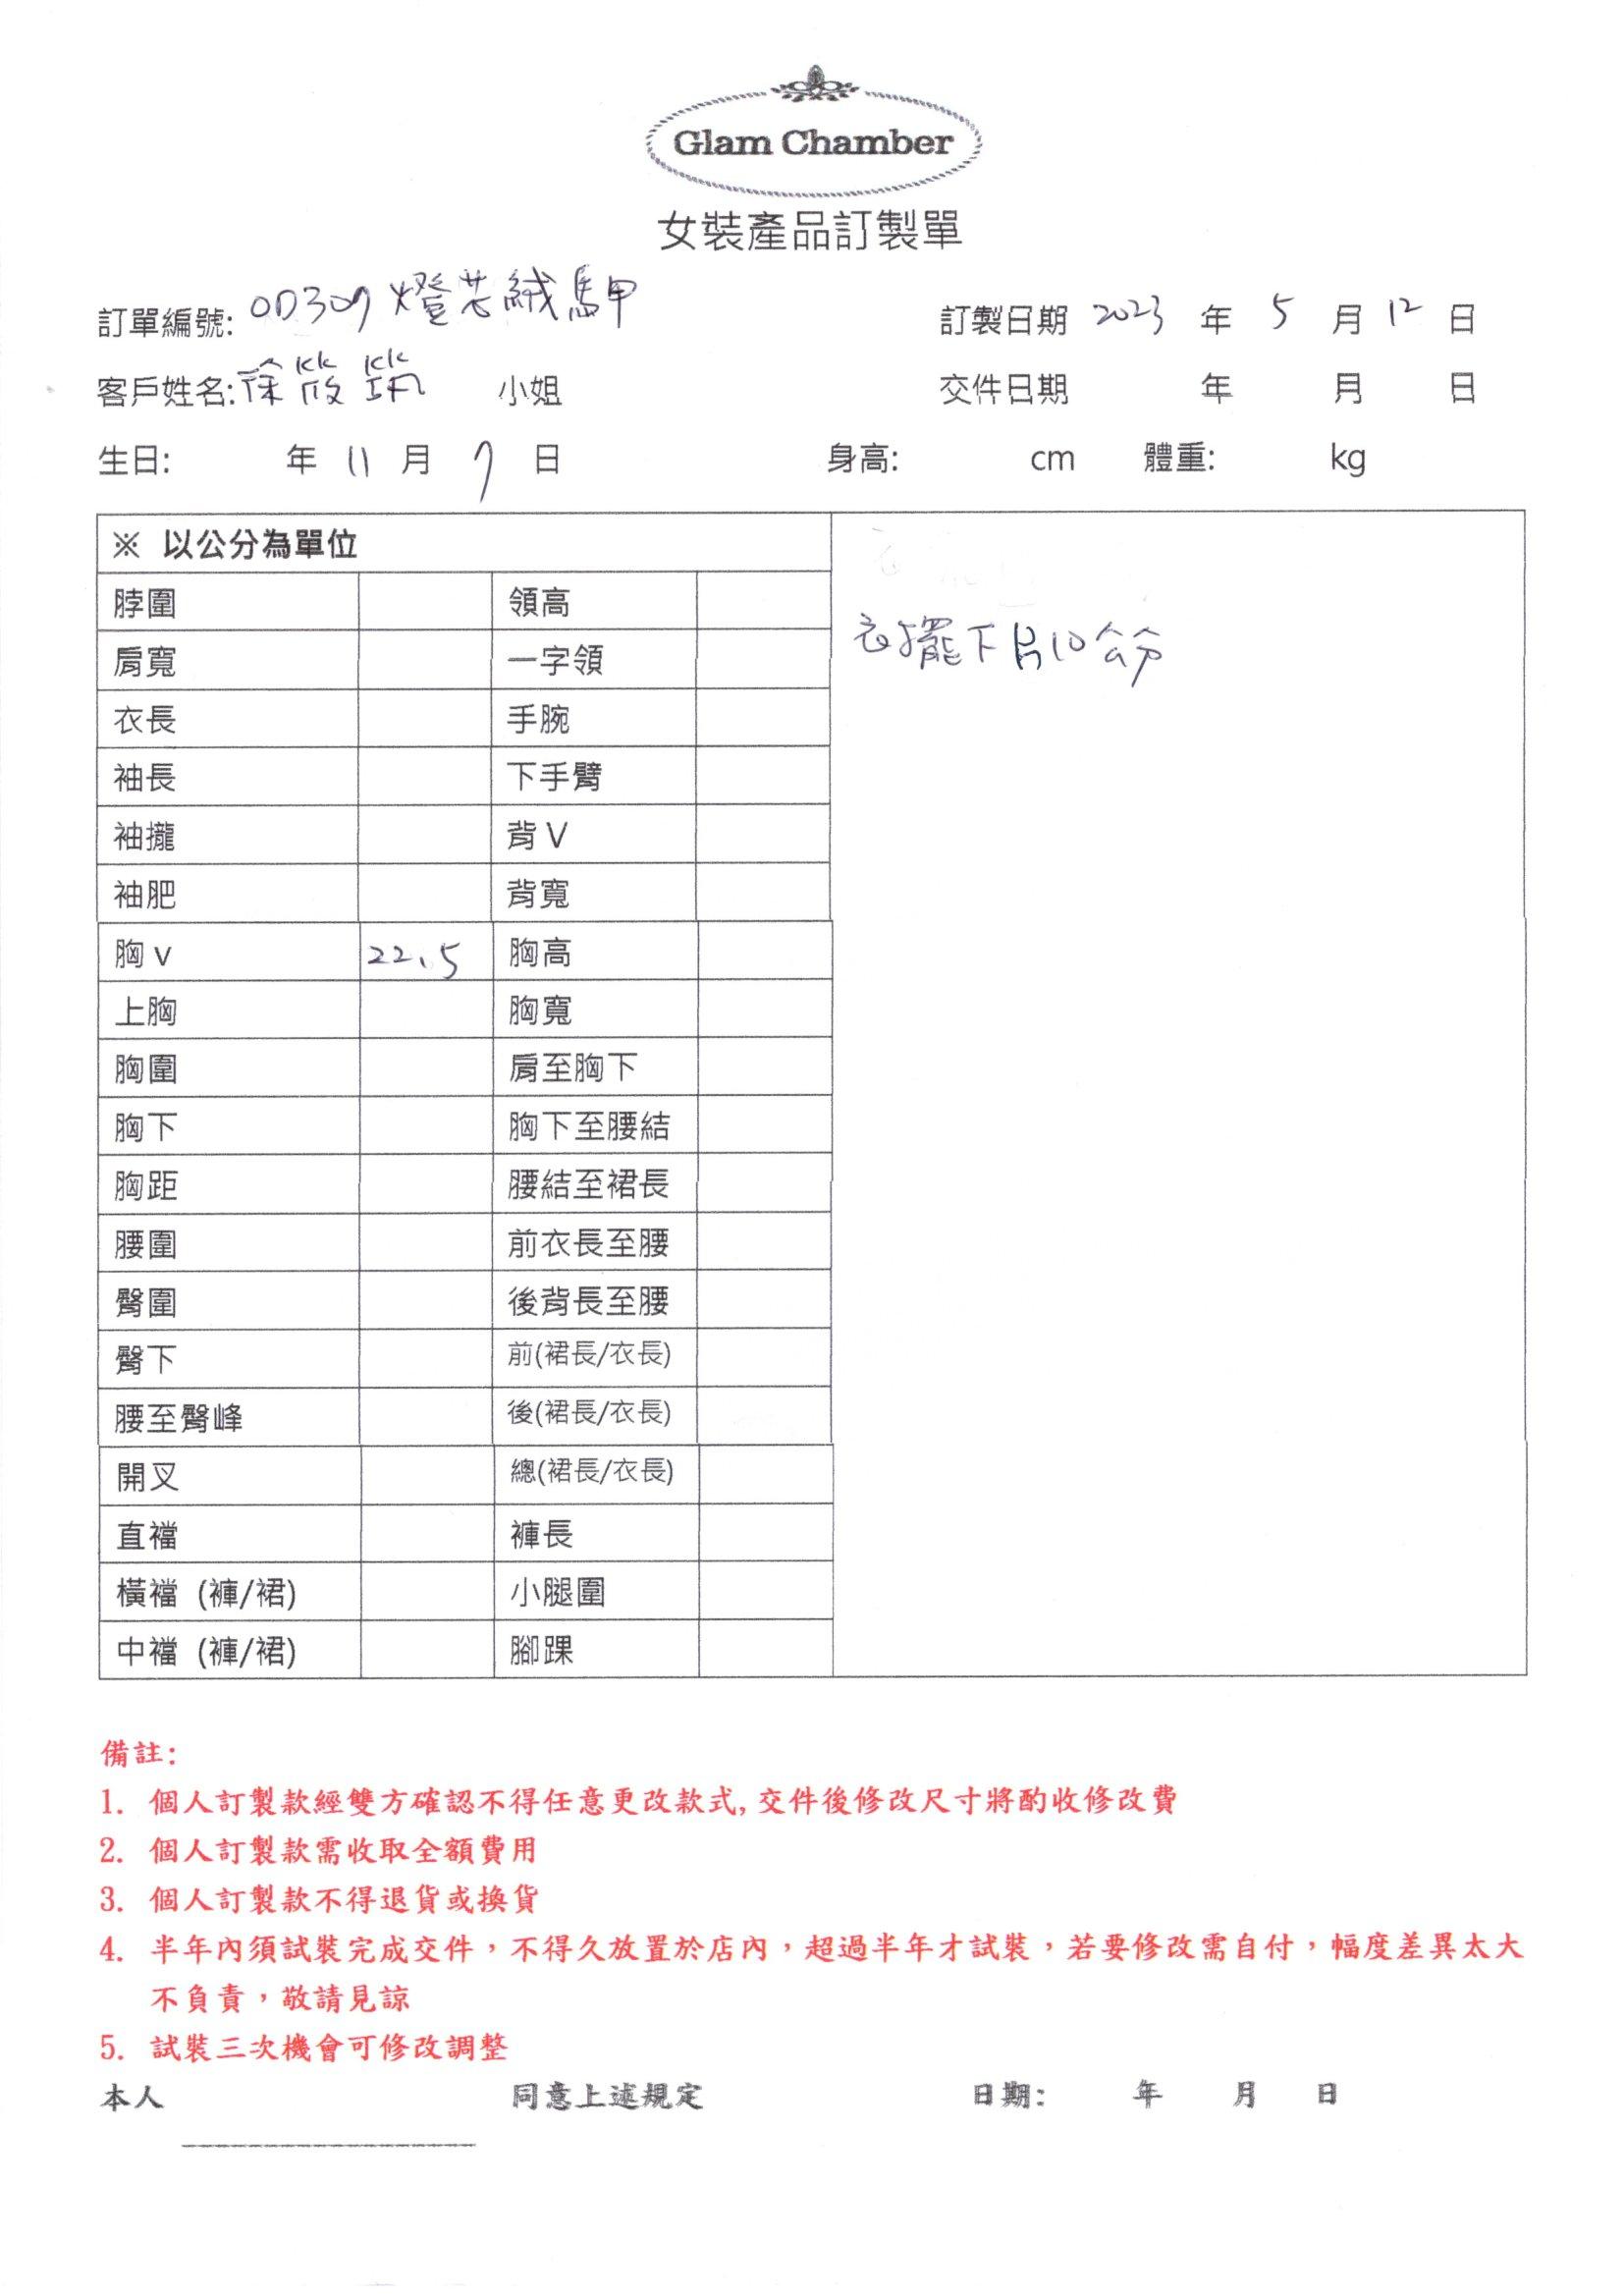 Glam Chamber
女裝產品訂製單
訂單編號: OD309 燈芯絨馬甲 訂製日期 2023 年 5 月 12 日
客戶姓名: 徐筱筑 小姐 交件日期 年 月 日
生日: 年 11 月 7 日 身高: cm 體重: kg
※ 以公分為單位
脖圍 領高
肩寬 一字領
衣長 手腕
袖長 下手臂
袖攏 背V
袖肥 背寬
胸v 22.5 胸高
上胸 胸寬
胸圍 肩至胸下
胸下 胸下至腰結
胸距 腰結至裙長
腰圍 前衣長至腰
臀圍 後背長至腰
臀下 前(裙長/衣長)
腰至臀峰 後(裙長/衣長)
開叉 總(裙長/衣長)
直襠 褲長
橫襠 (褲/裙) 小腿圍
中襠 (褲/裙) 腳踝
衣擺下片10公分
備註:
1. 個人訂製款經雙方確認不得任意更改款式,交件後修改尺寸將酌收修改費
2. 個人訂製款需收取全額費用
3. 個人訂製款不得退貨或換貨
4. 半年內須試裝完成交件,不得久放置於店內,超過半年才試裝,若要修改需自付,幅度差異太大
不負責,敬請見諒
5. 試裝三次機會可修改調整
本人 同意上述規定 日期: 年 月 日